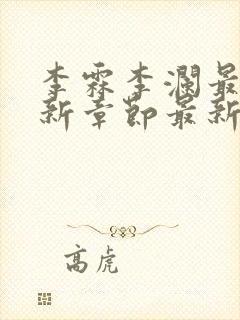 李霖李澜最
新章节最新
高虎